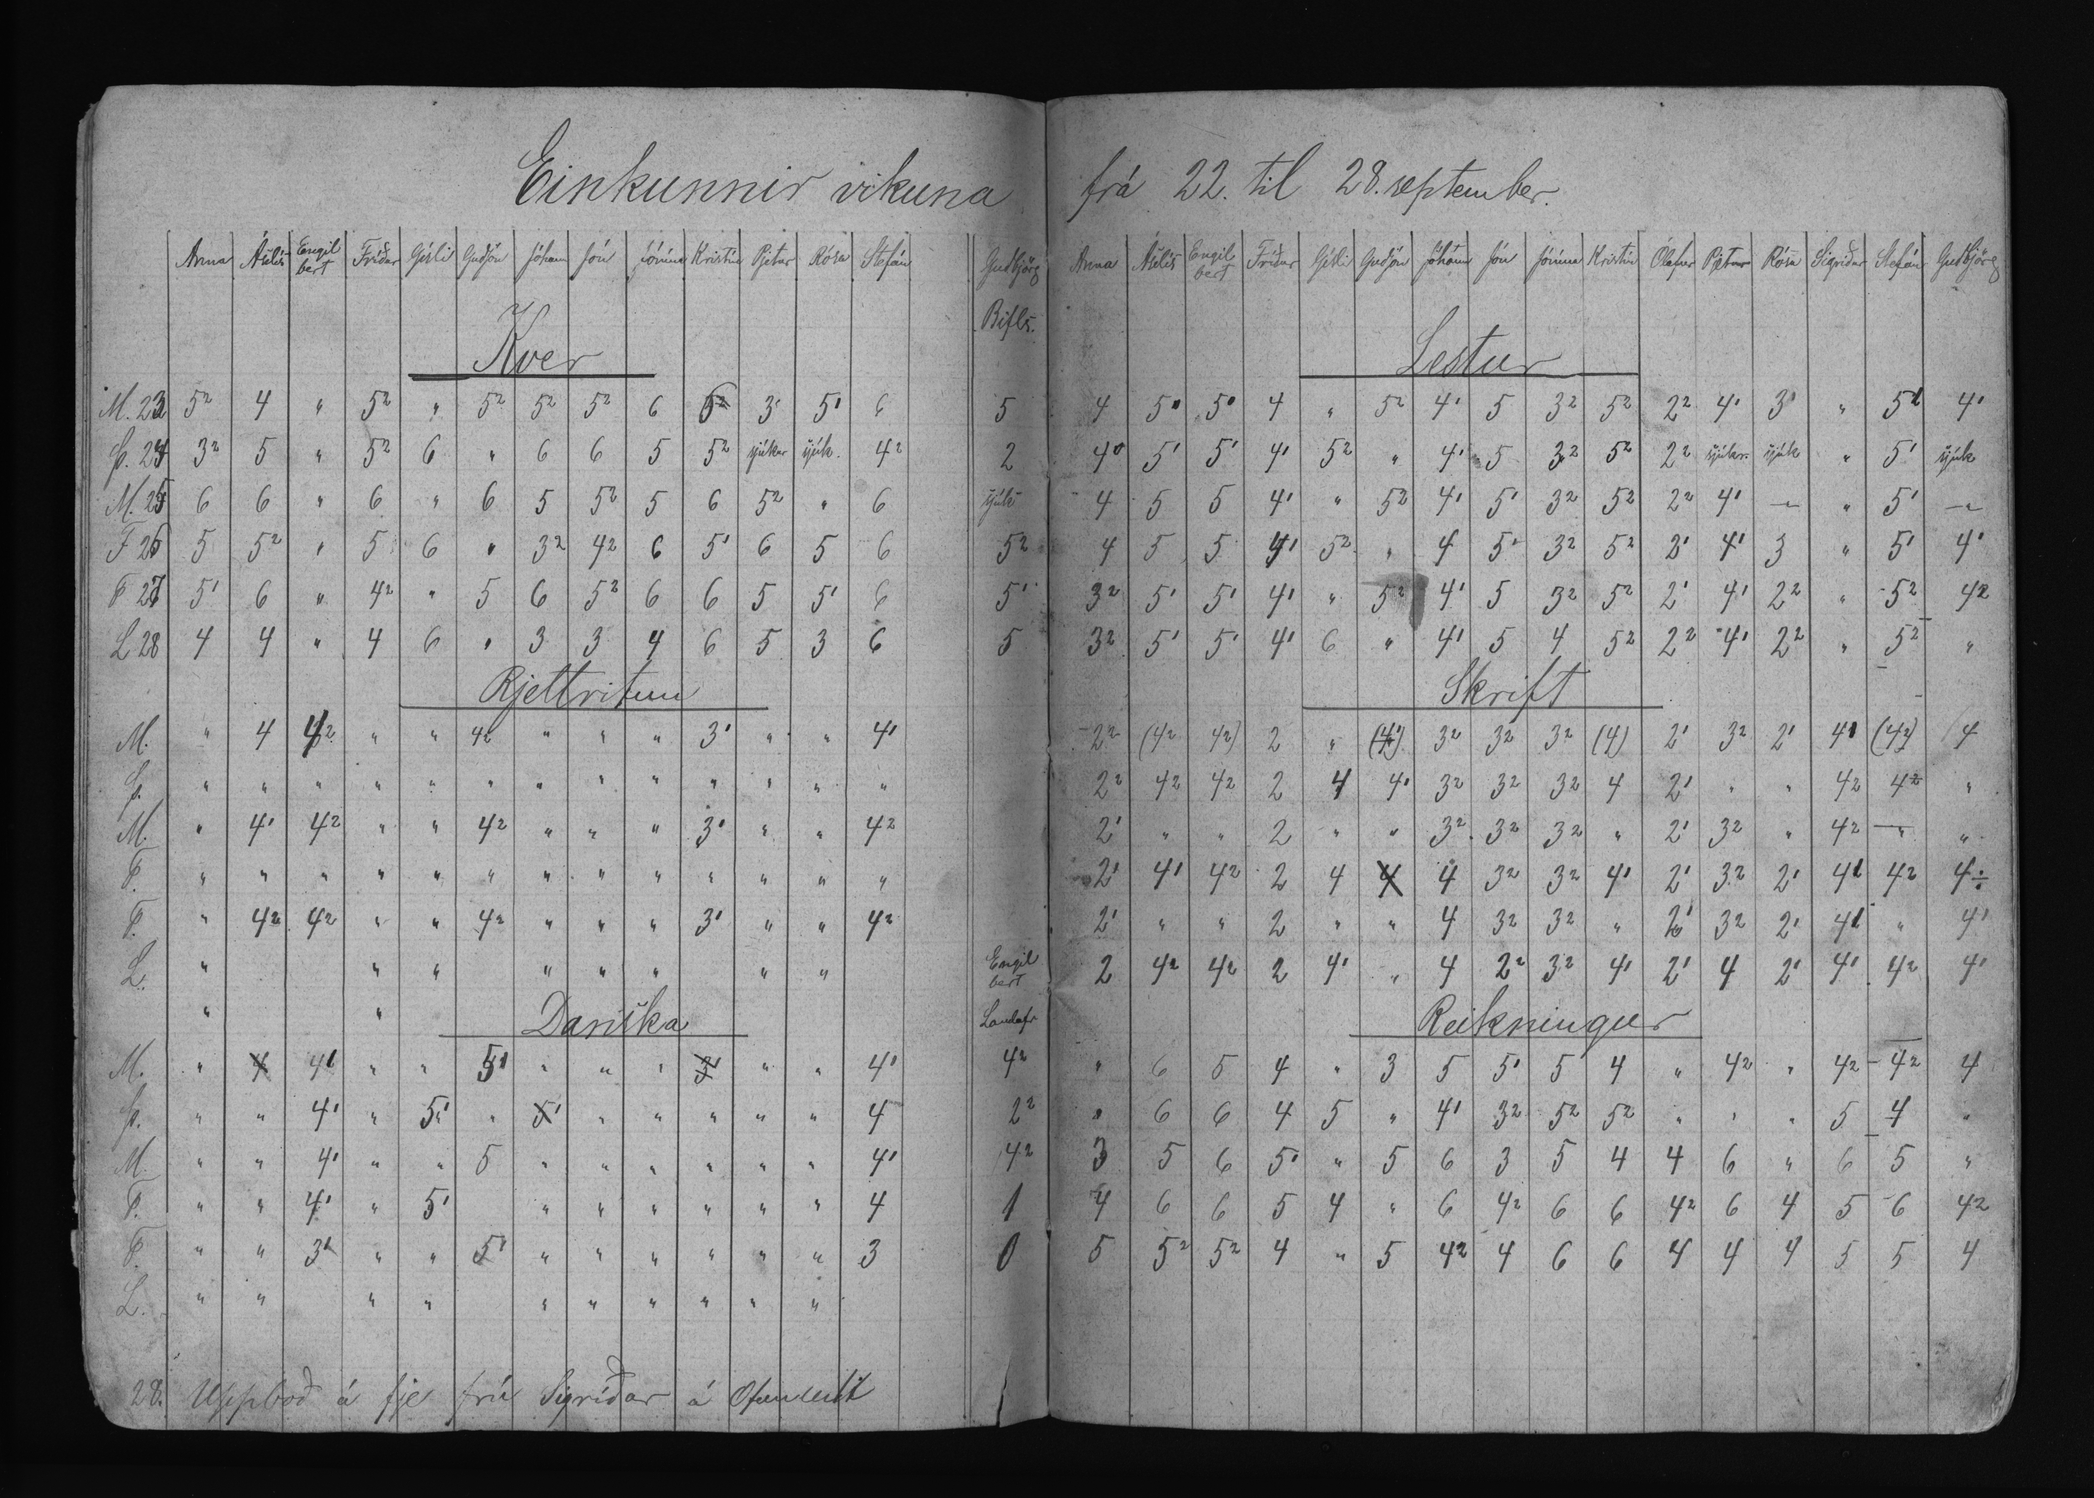 Einkunnir vikuna frá 22. til 28. september.
Anna Ásdís Engilbert Fríður Gísli Guðjón Jóhann Jón Jónína Kristín Pjetur Rósa Stefán Guðbjörg
Bifls.
Kver
M. 23 5² 4 " 5² " 5² 5² 5² 6 5² 3' 5' 6 5
Þ. 24 3² 5 " 5² 6 " 6 6 5 5² sjúkur sjúk. 4² 2
M. 25 6 6 " 6 " 6 5 5² 5 6 5² " 6 sjúk
F 26 5 5² " 5 6 " 3² 4² 6 5' 6 5 6 5²
F 27 5' 6 " 4² " 5 6 5² 6 6 5 5' 6 5'
L 28 4 4 " 4 6 " 3 3 4 6 5 3 6 5
Rjettritun
M. " 4 4² " " 4² " " " 3' " " 4'
Þ. " " " " " " " " " " " " "
M. " 4' 4² " " 4² " " " 3' " " 4²
F. " " " " " " " " " " " " "
F. " 4² 4² " " 4² " " " 3' " " 4²
L. " " " " " " " "
Engilbert
" "
Danska
Landafr
M. " 4 4' " " 5' " " " 3' " " 4' 4²
Þ. " " 4' " 5' " 5' " " " " " 4 2²
M. " " 4' " " 5 " " " " " " 4' 4²
F. " " 4' " 5' " " " " " " 4 1
F. " " 3' " " 5' " " " " " " 3 0
L. " " " " " " " " " "
28. Uppboð á fje frú Sigríðar á
Anna Ásdís Engilbert Fríður Gísli Guðjón Jóhann Jón Jónína Kristín Ólafur Pjetur Rósa Sigríður Stefán Guðbjörg
Lestur
4 5' 5' 4 " 5² 4' 5 3² 5² 2² 4' 3' " 5' 4'
4' 5' 5' 4' 5² " 4' 5 3² 5² 2² sjúkur sjúk " 5' sjúk
4 5 5 4' " 5² 4' 5' 3² 5² 2² 4' — " 5' —
4 5 5 4' 5² " 4 5' 3² 5² 2' 4' 3 " 5' 4'
3² 5' 5' 4' " 5² 4' 5 3² 5² 2' 4' 2² " 5² 4²
3² 5' 5' 4' 6 " 4' 5 4 5² 2² 4' 2² " 5² "
Skrift
2² (4² 4²) 2 " (4') 3² 3² 3² (4) 2' 3² 2' 4' (4²) 4
2² 4² 4² 2 4 4' 3² 3² 3² 4 2' " " 4² 4² "
2' " " 2 " " 3² 3² 3² " 2' 3² " 4² " "
2' 4' 4² 2 4 4 4 3² 3² 4' 2' 3² 2' 4' 4² 4÷
2' " " 2 " " 4 3² 3² " 2' 3² 2' 4' " 4'
2 4² 4² 2 4' " 4 2² 3² 4' 2' 4 2' 4' 4² 4'
Reikningur
" 6 5 4 " 3 5 5' 5 4 " 4² " 4² 4² 4
" 6 6 4 5 " 4' 3² 5² 5² " " " 5 4 "
3 5 6 5' " 5 6 3 5 4 4 6 " 6 5 "
4 6 6 5 4 " 6 4² 6 6 4² 6 4 5 6 4²
5 5² 5² 4 " 5 4² 4 6 6 4 4 4 5 5 4